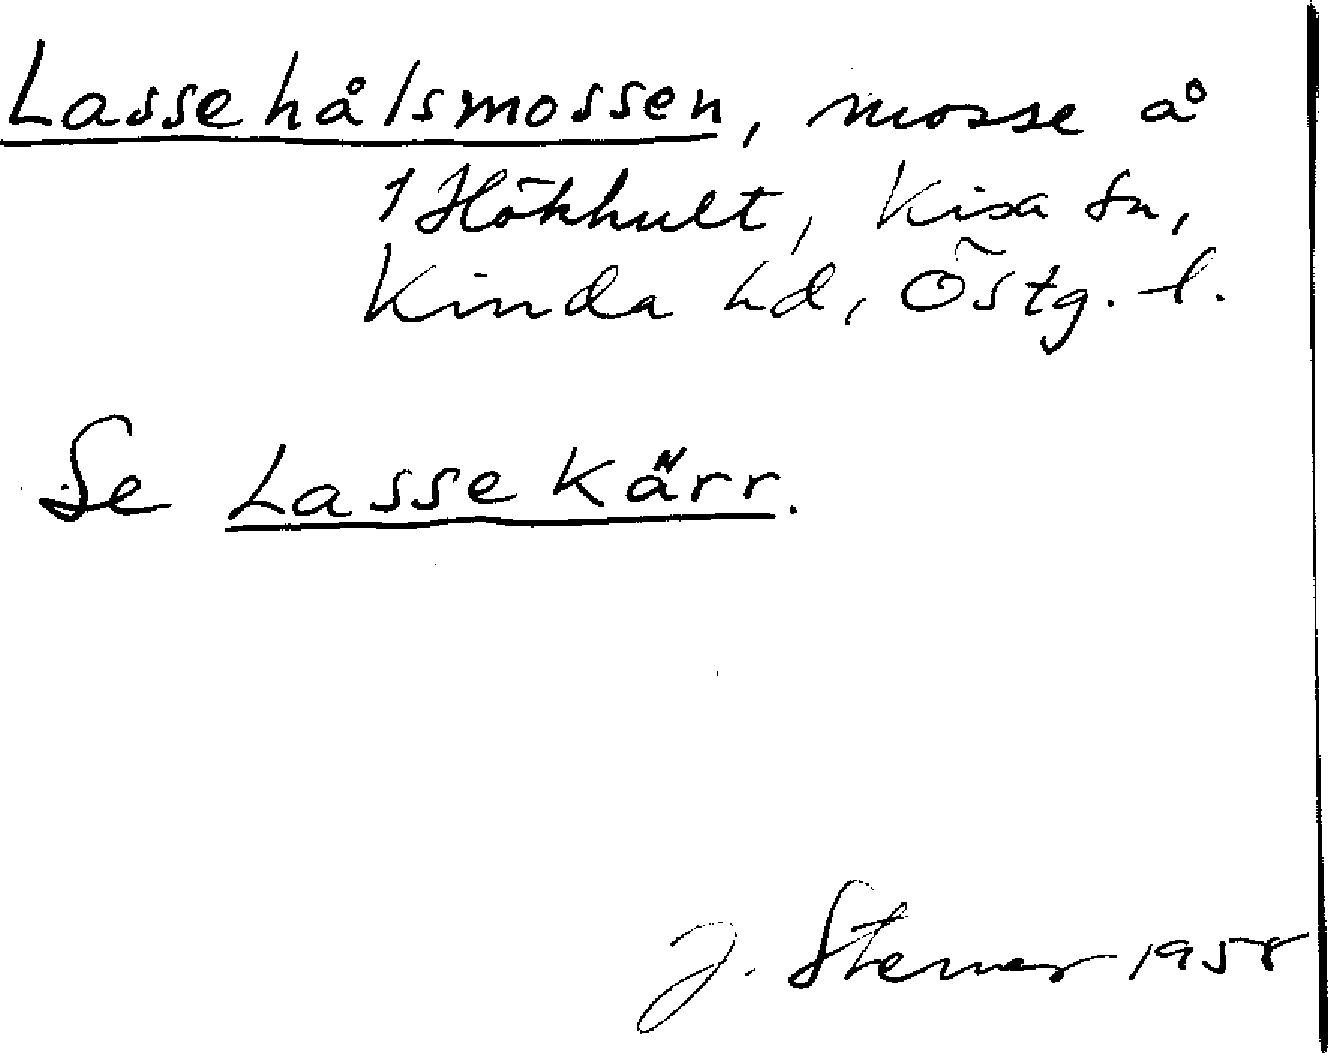 Lassehålsmossen, mosse å
1 Hökhult, Kisa sn,
Kinda hd, Östg. l.
Se Lasse kärr.
J. Sterner 1958